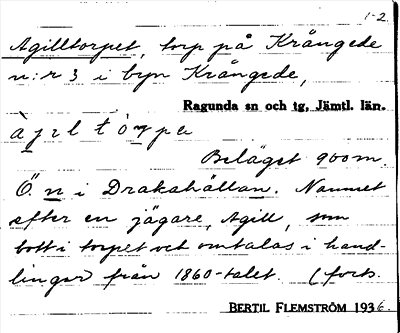 1-2
Agilltorpet, torp på Krångede
n:r 3 i byn Krångede,
Ragunda sn och tg, Jämtl. län.
Beläget 900 m.
Ö. n i Drakahällan. Namnet
efter en jägare, Agill, som
bott i torpet och omtalas i hand-
lingar från 1860-talet. (forts.
BERTIL FLEMSTRÖM 1936.